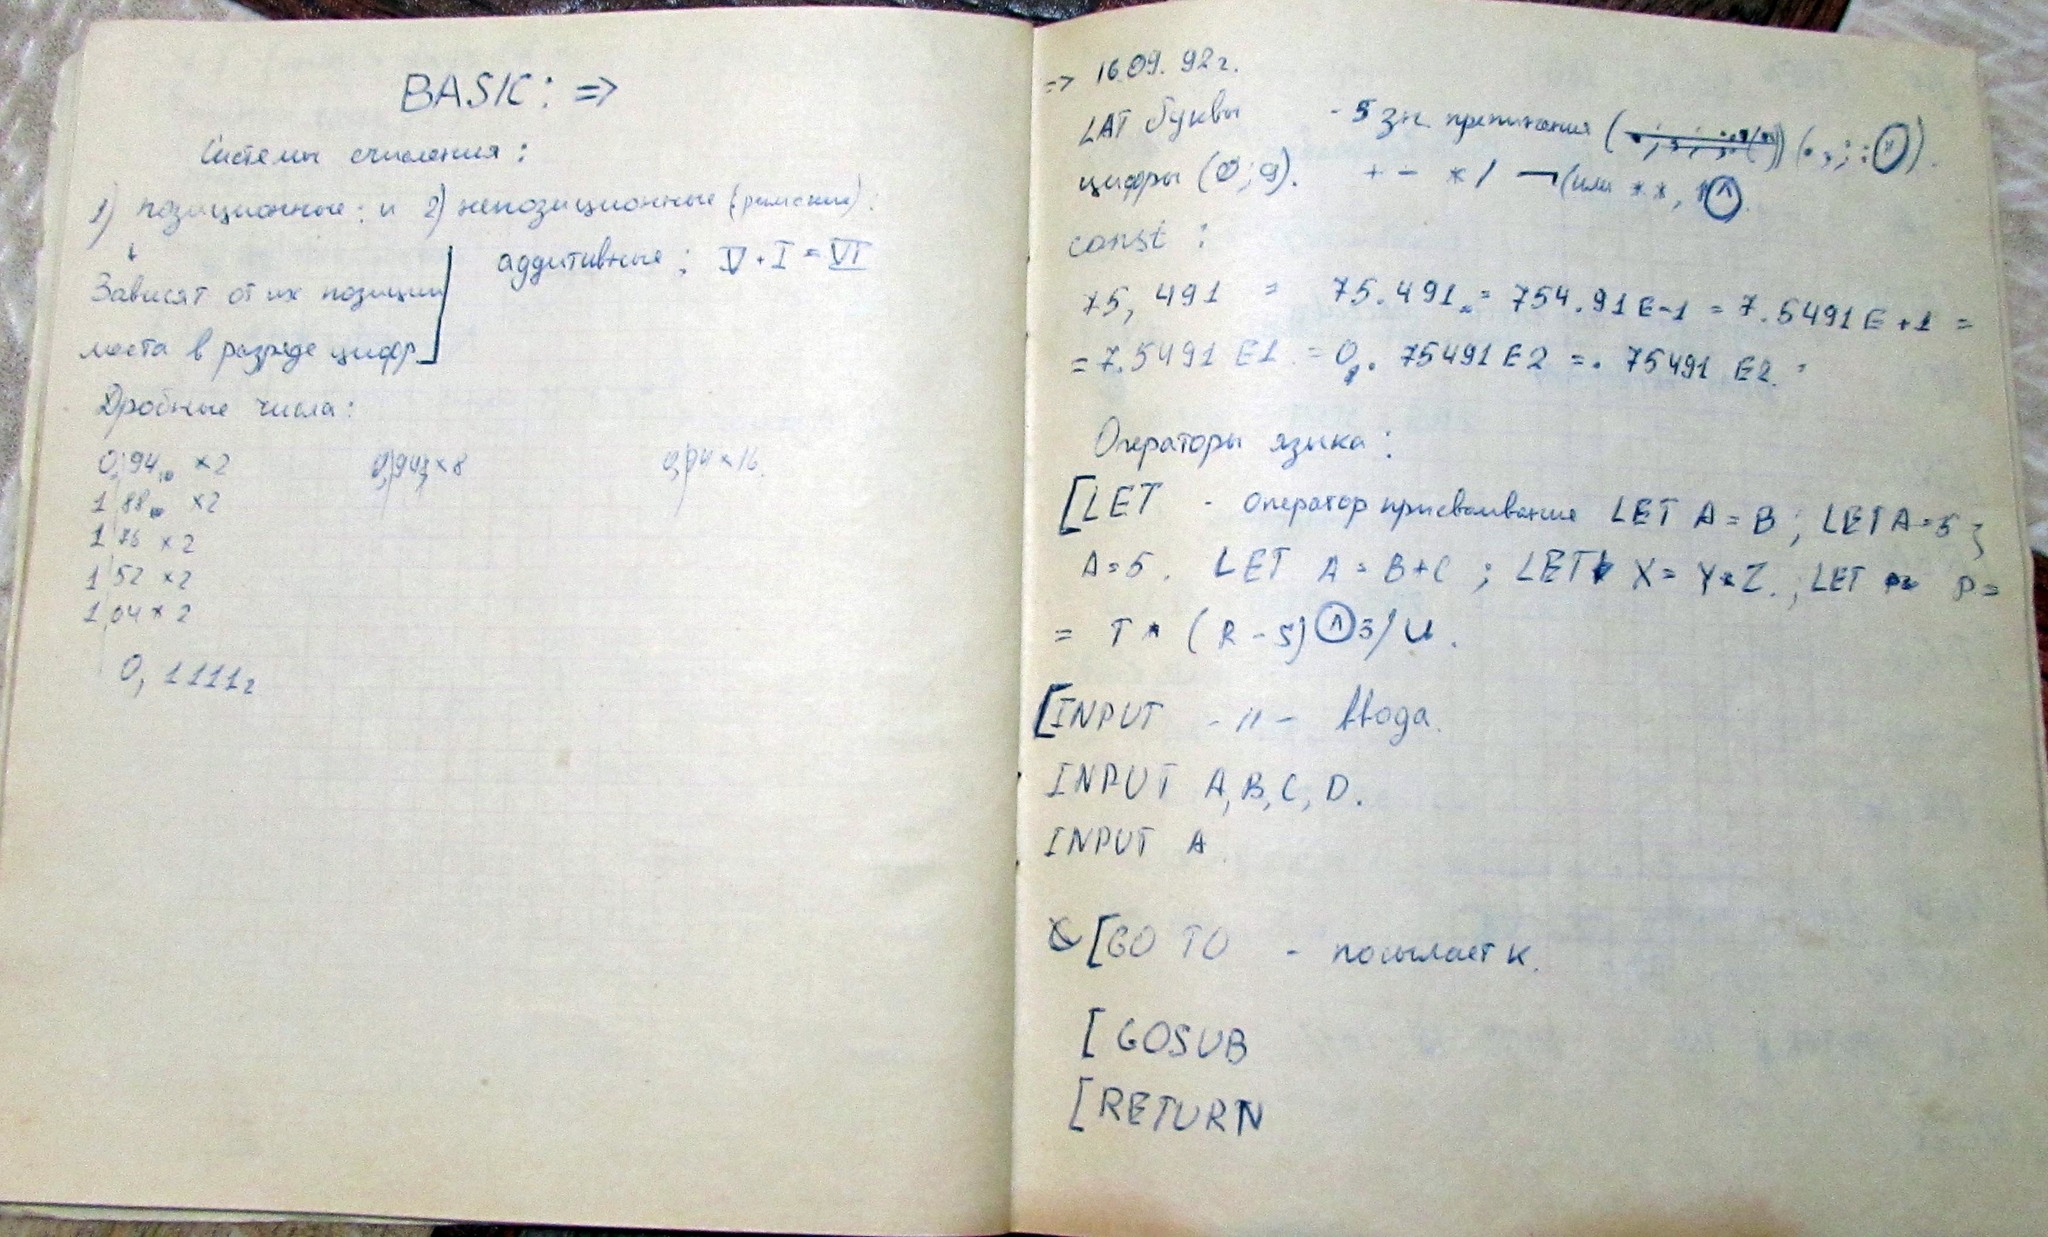 BASIC: =>
Системы счисления:
1) позиционные: и 2) непозиционные (римские):
↓
аддитивные; V + I = VI
Зависят от их позиции
места в разряде цифр
Дробные числа:
0,94₁₀ × 2
0,94 × 8
0,94 × 16.
1 88₁₀ × 2
1 76 × 2
1 52 × 2
1 04 × 2
0, 1111₂
=> 16.09.92г.
LAT буквы - 5 зн. препинания (. , ; : ")
цифры (0; 9). + - * / ¬ (или **, ^)
const:
75,491 = 75.491 = 754.91E-1 = 7.5491E+1 =
= 7.5491 E1 = 0. 75491 E2 = . 75491 E2.
Операторы языка:
[LET - оператор присваивание LET A = B; LET A = 5;
A = 5. LET A = B + C; LET X = Y * Z.; LET P =
= T * (R - S) ^ 3 / U.
[INPUT - " - ввода.
INPUT A, B, C, D.
INPUT A
[GO TO - посылает к.
[GOSUB
[RETURN